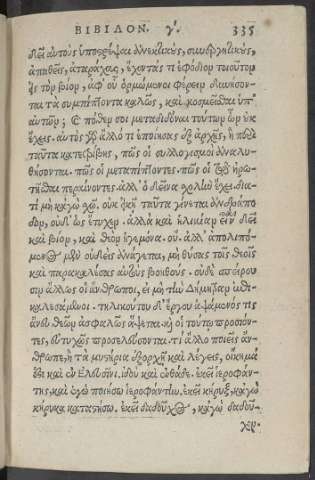 ΒΙΒΙΛΟΝ. γ'. 335
δεῖ αὐτοὺς ὑποστρέψαι ἀνεκτικοὺς, συνεργητικοὺς,
ἀπαθεῖς, ἀταράχους, ἔχοντάς τι ἐφόδιον τοιοῦτον
εἰς τὸν βίον, ἀφ' οὗ ὁρμώμενοι φέρειν δυνήσον-
ται τὰ συμπίπτοντα καλῶς, καὶ κοσμεῖσθαι ὑπ'
αὐτῶν; καὶ πόθεν σοι μεταδιδόναι τούτων ὧν οὐκ
ἔχεις. αὐτὸς γὰρ ἄλλο τι ἐποίησας ἐξ ἀρχῆς, ἢ περὶ
ταῦτα κατετρίβης, πῶς οἱ συλλογισμοὶ ἀναλυ-
θήσονται. πῶς οἱ μεταπίπτοντες. πῶς οἱ τῷ ἠρω-
τῆσθαι περαίνοντες· ἀλλ' ὁ δεῖνα σχολὴν ἔχει· δια-
τί μὴ κἀγὼ σχῶ. οὐκ εἰκῆ ταῦτα γίνεται ἀνδράπο-
δον, οὐδ' ὡς ἔτυχεν. ἀλλὰ καὶ ἡλικίαν εἶναι δεῖ
καὶ βίον, καὶ θεὸν ἡγεμόνα. οὔ. ἀλλ' ἀπολιμέ-
νος μὲν οὐδεὶς ἀνάγεται, μὴ θύσας τοῖς θεοῖς
καὶ παρακαλέσας αὐτοὺς βοηθούς. οὐδὲ σπείρου
σιν ἄλλως οἱ ἄνθρωποι, εἰ μὴ τὴν Δήμητραν ἐπι-
καλεσάμενοι. τηλικούτου δ' ἔργου ἁψάμενός τις
ἄνευ θεῶν ἀσφαλῶς ἅψεται. καὶ οἱ τούτῳ προσιόν-
τες, εὐτυχῶς προσελεύσονται. τί ἄλλο ποιεῖς ἄν-
θρωπε, ἢ τὰ μυστήρια ἐξορχῇ καὶ λέγεις, οἴκημά
ἐστι καὶ ἐν Ἐλευσῖνι. ἰδοὺ καὶ ἐνθάδε. ἐκεῖ ἱεροφάν-
της, καὶ ἐγὼ ποιήσω ἱεροφάντην. ἐκεῖ κῆρυξ, κἀγὼ
κήρυκα καταστήσω. ἐκεῖ δᾳδοῦχος, κἀγὼ δᾳδοῦ-
χον.